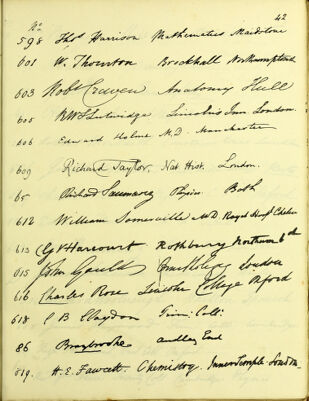 42
No
598 Thos Harrison Mathematics Maidstone
601 W. Thornton Brockhall Northampton
603 Robt Craven Anatomy Hull
605 RWS Lutwidge Lincoln's Inn London.
606 Edward Holme M.D. Manchester
609 Richard Taylor. Nat. Hist. London.
65 Richard Saumarez Physic Bath
612 William Somerville M.D. Royal Hospl Chelsea
613 G V Harcourt Rothbury Northumbd
615 John Gould Ornithology London
616 Charles Rose Lincoln College Oxford
618 C B Claydon Trin: Coll:
86 Braybrooke Audley End
619. H. E. Fawcett. Chemistry. Inner Temple. London.